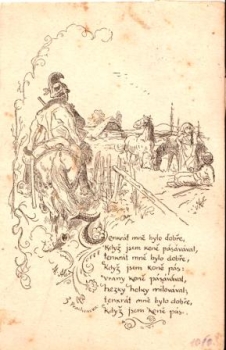 Tenkrát mně bylo dobře,
Když jsem koně pásával,
tenkrát mně bylo dobře,
Když jsem koně pás:
vrany koně pásával,
hezky holky milovával,
tenkrát mně bylo dobře,
Když jsem koně pás.